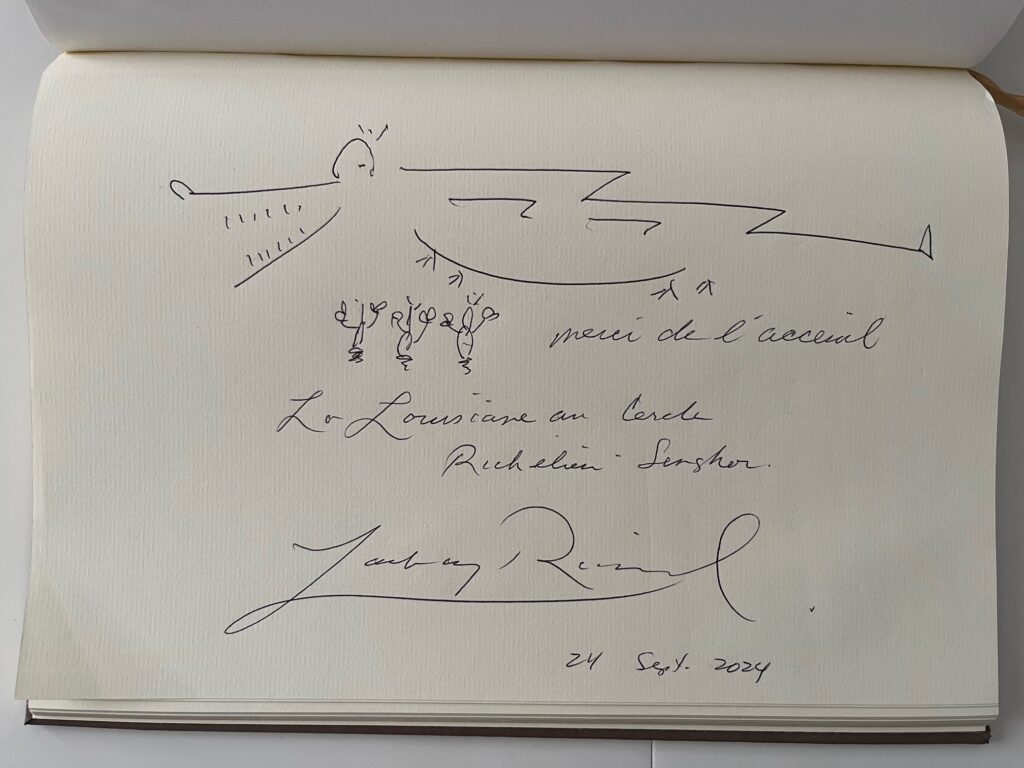 merci de l'acceuil
La Louisiane au Cercle
Richelieu - Senghor.
Zachary Richard
24 Sept. 2024